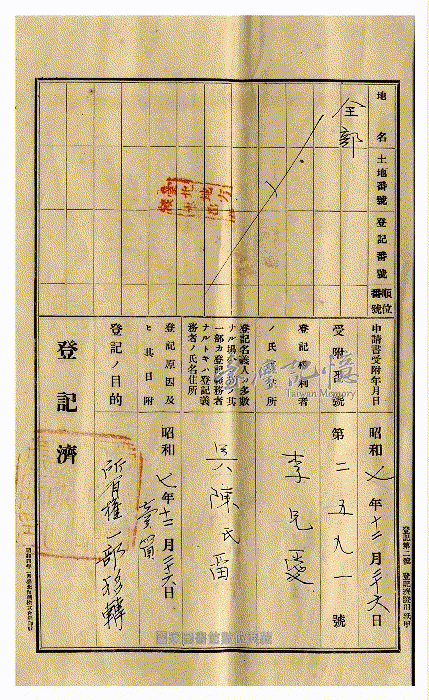 地名
土地番號
登記番號
順位番號
全部
申請書受附年月日
昭和七年十二月二十六日
受附番號
第二五九一號
登記權利者ノ氏名住所
李
登記名義人ノ多數ナル場合其一部カ登記義務者ナルトキハ登記義務者ノ氏名住所
吳陳氏留
登記原因及ヒ其日附
昭和七年十二月二十六日
賣買
登記ノ目的
所有權一部移轉
登記濟
登記第二號 登記濟證用紙甲
臺灣記憶
Taiwan Memory